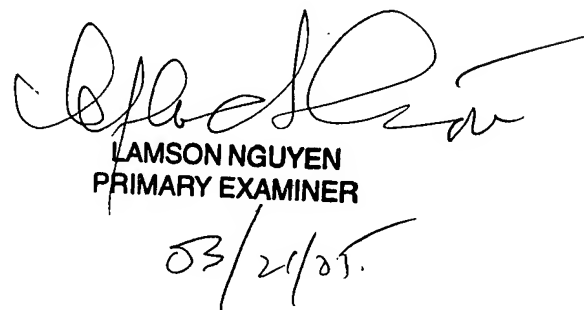 LAMSON NGUYEN
PRIMARY EXAMINER
03/21/05.